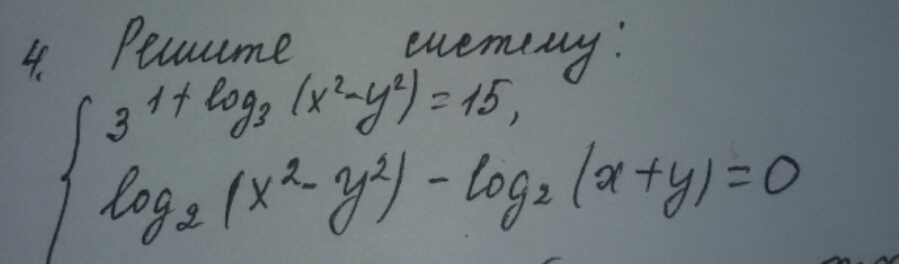 4. Решите систему:
3^{1+log_3(x²-y²)}=15,
log_2(x²-y²)-log_2(x+y)=0